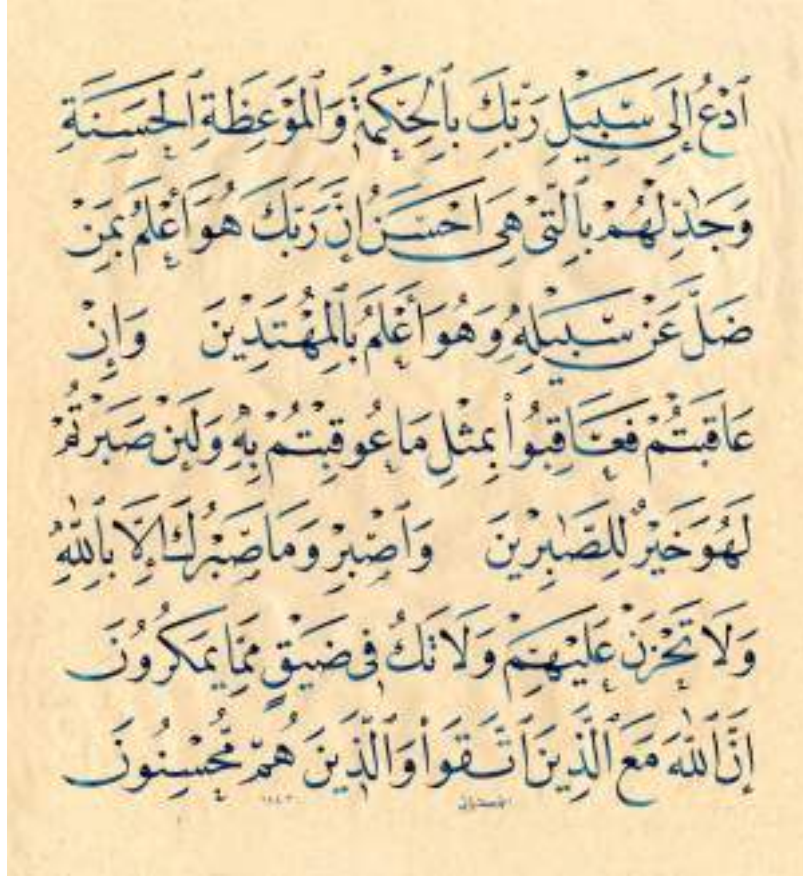 ٱدْعُ إِلَىٰ سَبِيلِ رَبِّكَ بِٱلْحِكْمَةِ وَٱلْمَوْعِظَةِ ٱلْحَسَنَةِ
وَجَٰدِلْهُمْ بِٱلَّتِي هِيَ أَحْسَنُ إِنَّ رَبَّكَ هُوَ أَعْلَمُ بِمَنْ
ضَلَّ عَنْ سَبِيلِهِ وَهُوَ أَعْلَمُ بِٱلْمُهْتَدِينَ وَإِنْ
عَاقَبْتُمْ فَعَاقِبُوا۟ بِمِثْلِ مَا عُوقِبْتُمْ بِهِ وَلَئِنْ صَبَرْتُمْ
لَهُوَ خَيْرٌ لِلصَّٰبِرِينَ وَٱصْبِرْ وَمَا صَبْرُكَ إِلَّا بِٱللَّهِ
وَلَا تَحْزَنْ عَلَيْهِمْ وَلَا تَكُ فِي ضَيْقٍ مِمَّا يَمْكُرُونَ
إِنَّ ٱللَّهَ مَعَ ٱلَّذِينَ ٱتَّقَوْا۟ وَٱلَّذِينَ هُمْ مُحْسِنُونَ